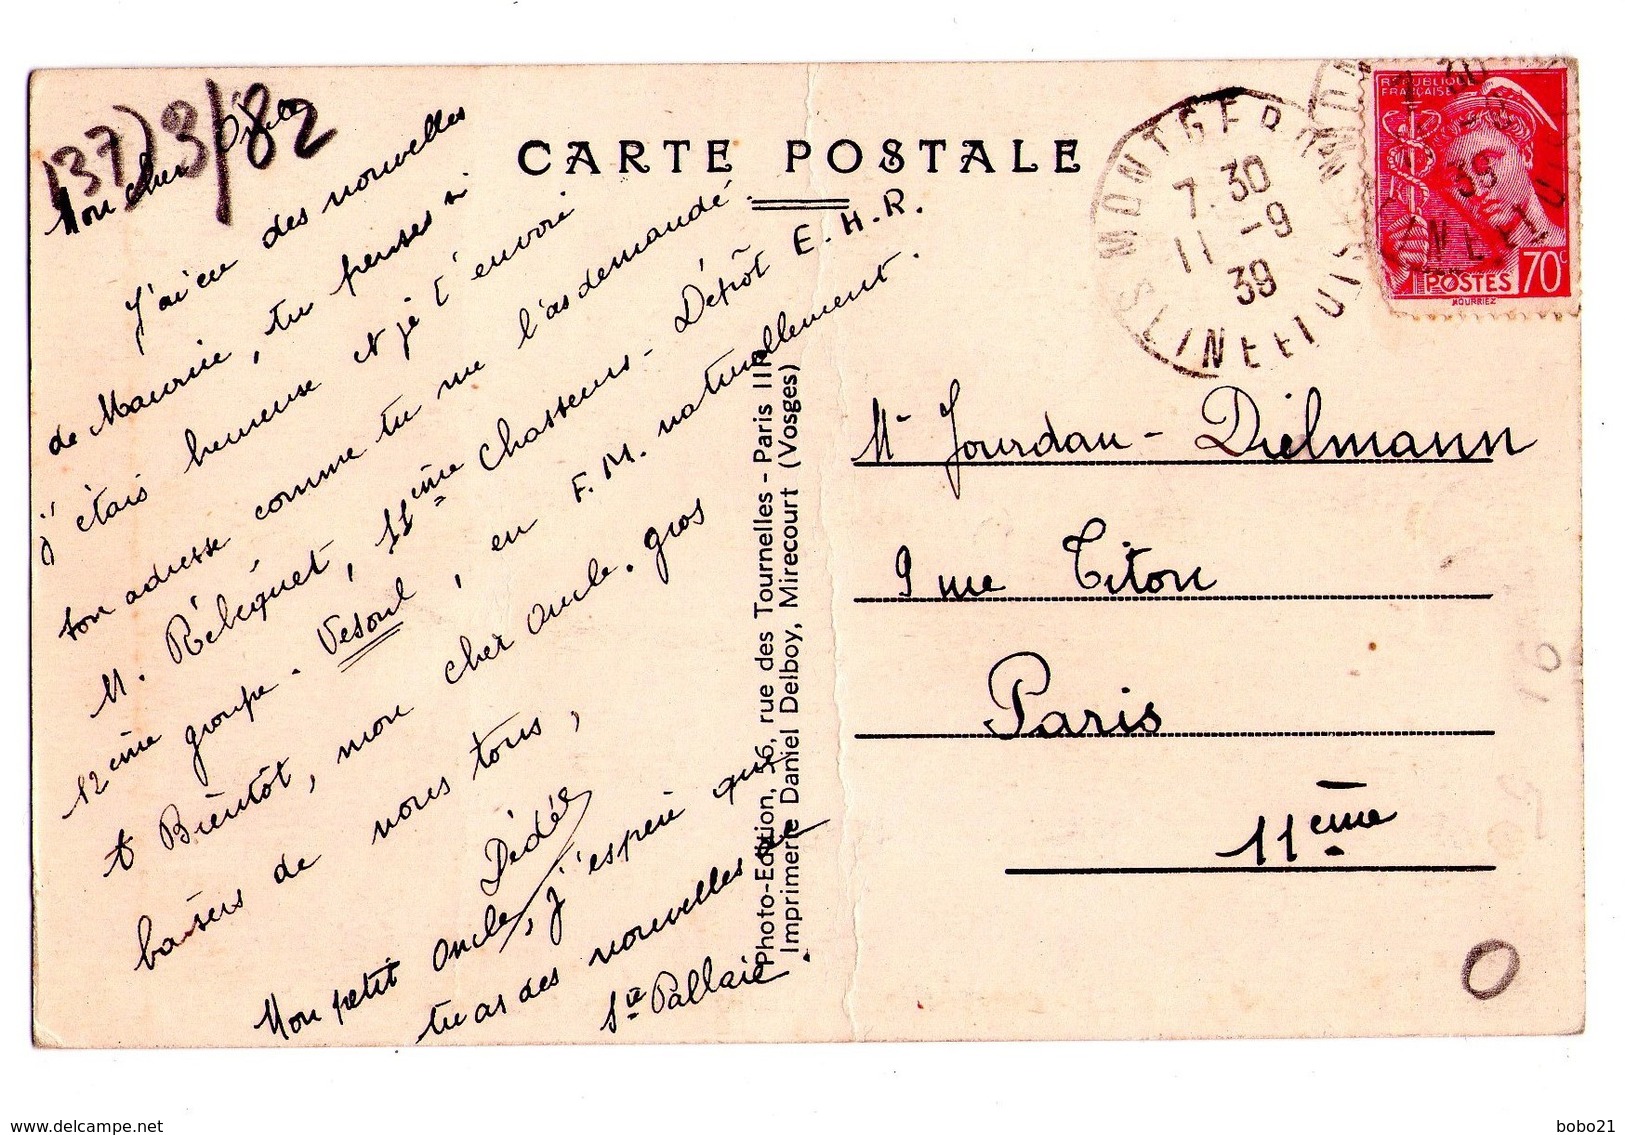 137)3/82
CARTE POSTALE
Mon cher Oncle
J'ai eu des nouvelles
de Maurice, tu penses si
j'étais heureuse et je t'envoie
ton adresse comme tu me l'as demandé.
M. Rébéquet, 11ème Chasseurs - Dépôt E.H.R.
12ème groupe - Vesoul, en F.M. naturellement.
A Bientôt, mon cher Oncle. gros
baisers de nous tous,
Dédée
Mon petit Oncle, j'espère que
tu as des nouvelles de
Ste Pallaie.
Photo-Edition, 56, rue des Tournelles - Paris III
Imprimerie Daniel Delboy, Mirecourt (Vosges)
MONTGERON
7.30
11 -9
39
SEINE ET OISE
REPUBLIQUE
FRANÇAISE
POSTES 70c
MOURRIEZ
Mr Jourdan - Dielmann
9 rue Titon
Paris
11ème
0
delcampe.net
bobo21